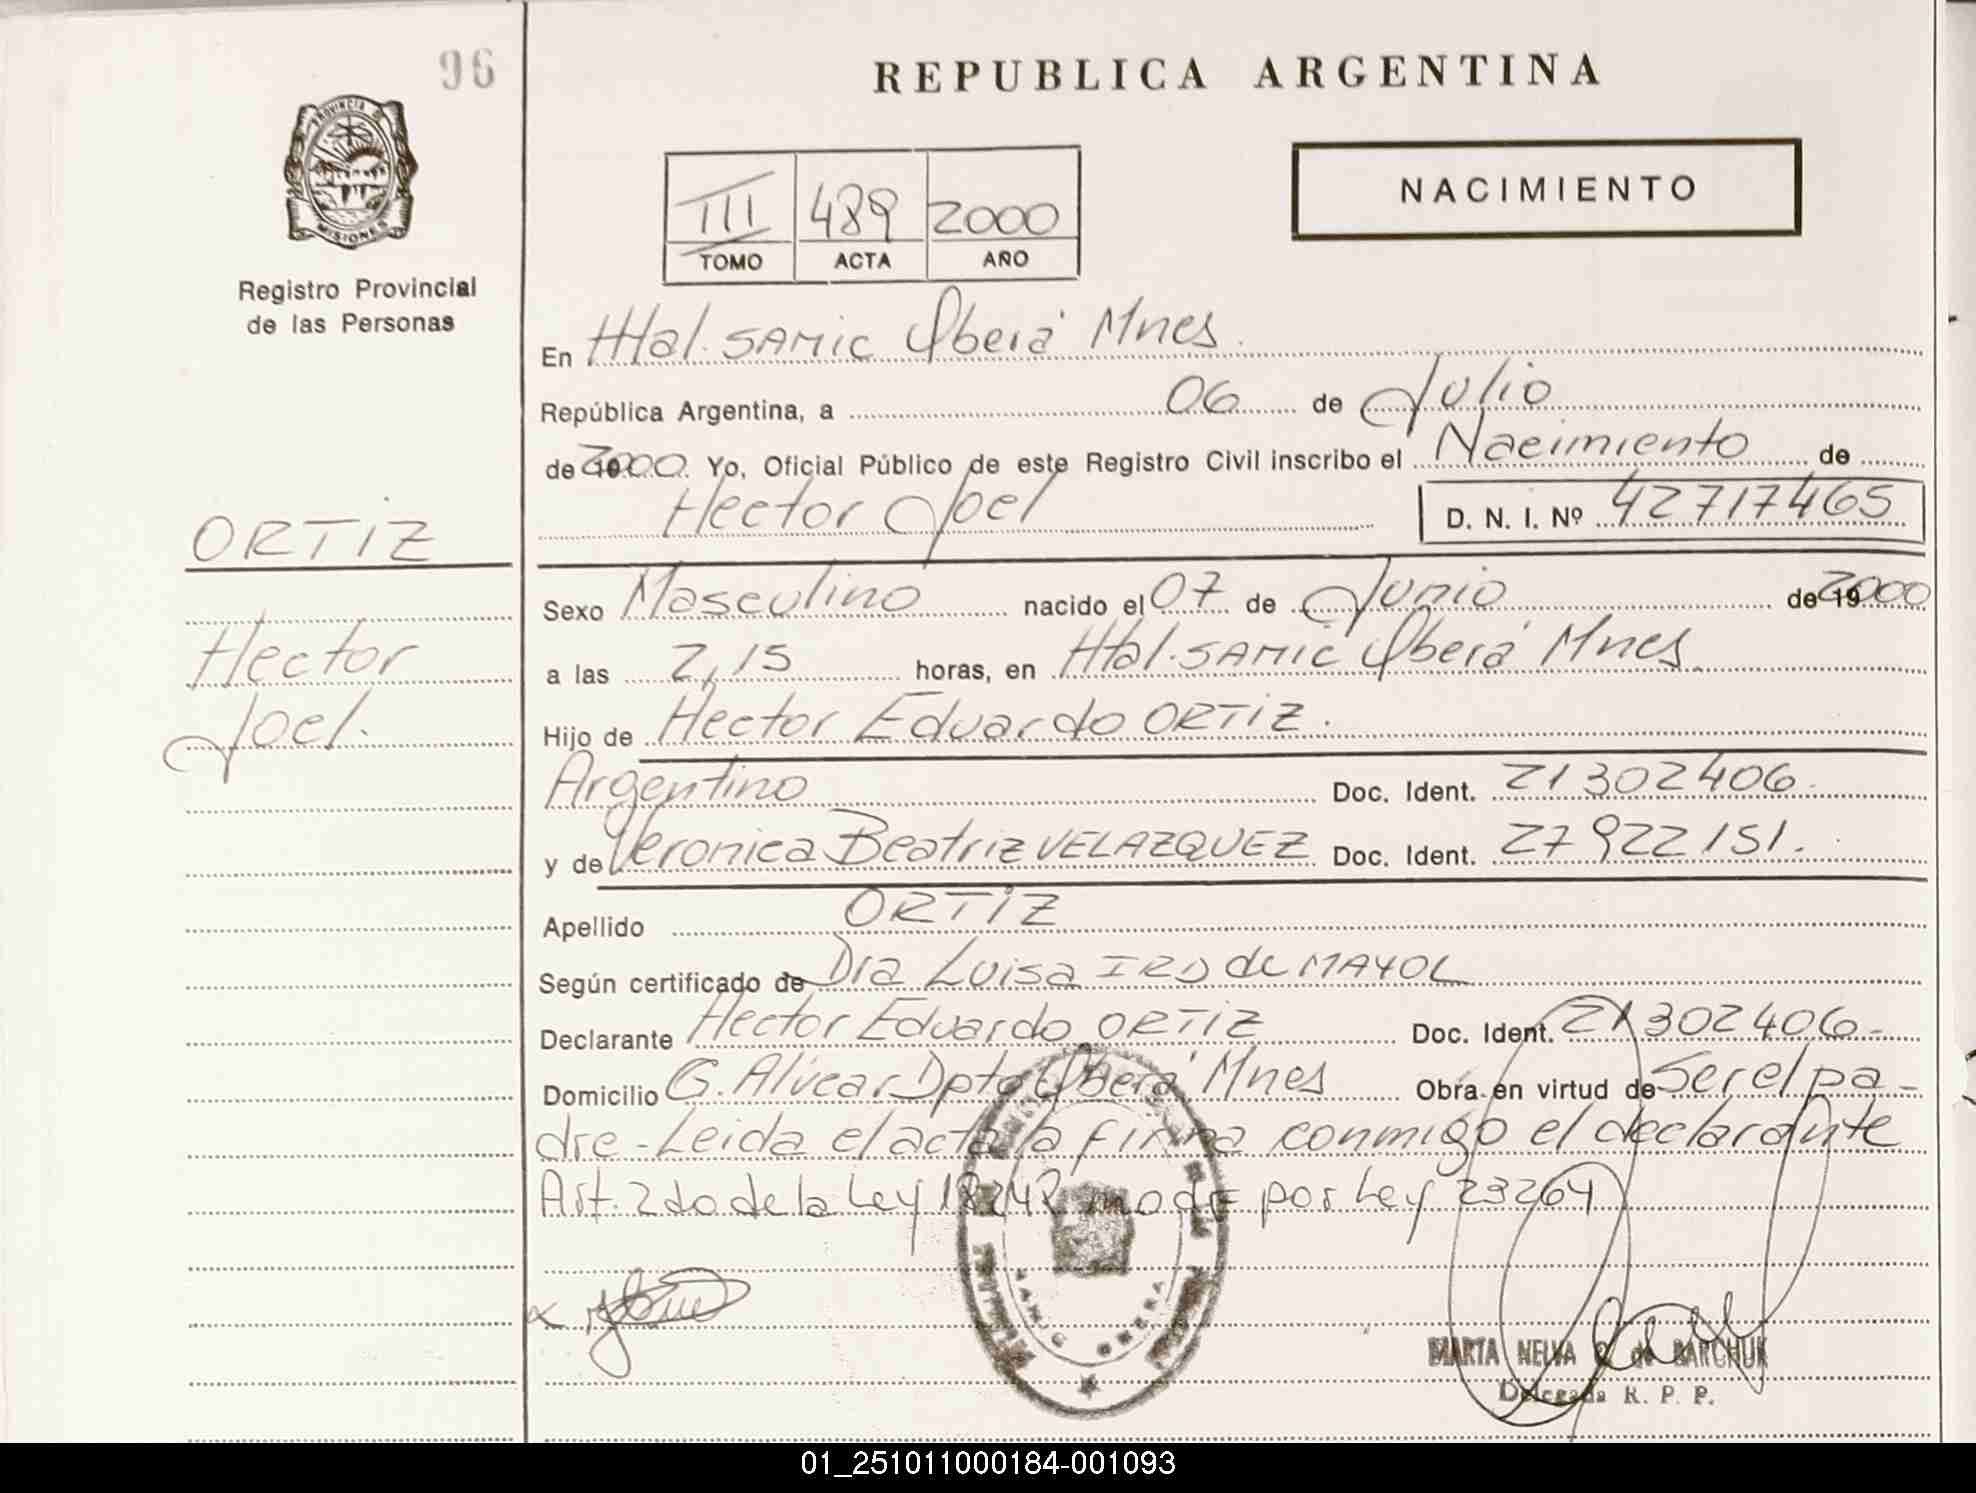 96
REPUBLICA ARGENTINA
PROVINCIA DE
MISIONES
Registro Provincial
de las Personas
III 489 2000
TOMO ACTA AÑO
NACIMIENTO
En Htal. SAMIC Oberá Mnes.
República Argentina, a 06 de Julio
de 2000. Yo, Oficial Público de este Registro Civil inscribo el Nacimiento de
Hector Joel D. N. I. Nº 42717465
ORTIZ
Hector
Joel.
Sexo Masculino nacido el 07 de Junio de 19 2000
a las 2,15 horas, en Htal. SAMIC Oberá Mnes.
Hijo de Hector Eduardo ORTIZ.
Argentino Doc. Ident. 21302406.
y de Veronica Beatriz VELAZQUEZ Doc. Ident. 27922151.
Apellido ORTIZ
Según certificado de Dra Luisa IRO de MAYOL
Declarante Hector Eduardo ORTIZ Doc. Ident. 21302406-
Domicilio G. Alvear Dpto Oberá Mnes Obra en virtud de Ser el pa-
dre - Leida el acta la firma conmigo el declarante
Art. 2do de la Ley 18248 modf por Ley 23264
SAMIC OBERA
MARTA NELVA de BARCHUK
Delegada R. P. P.
01_251011000184-001093